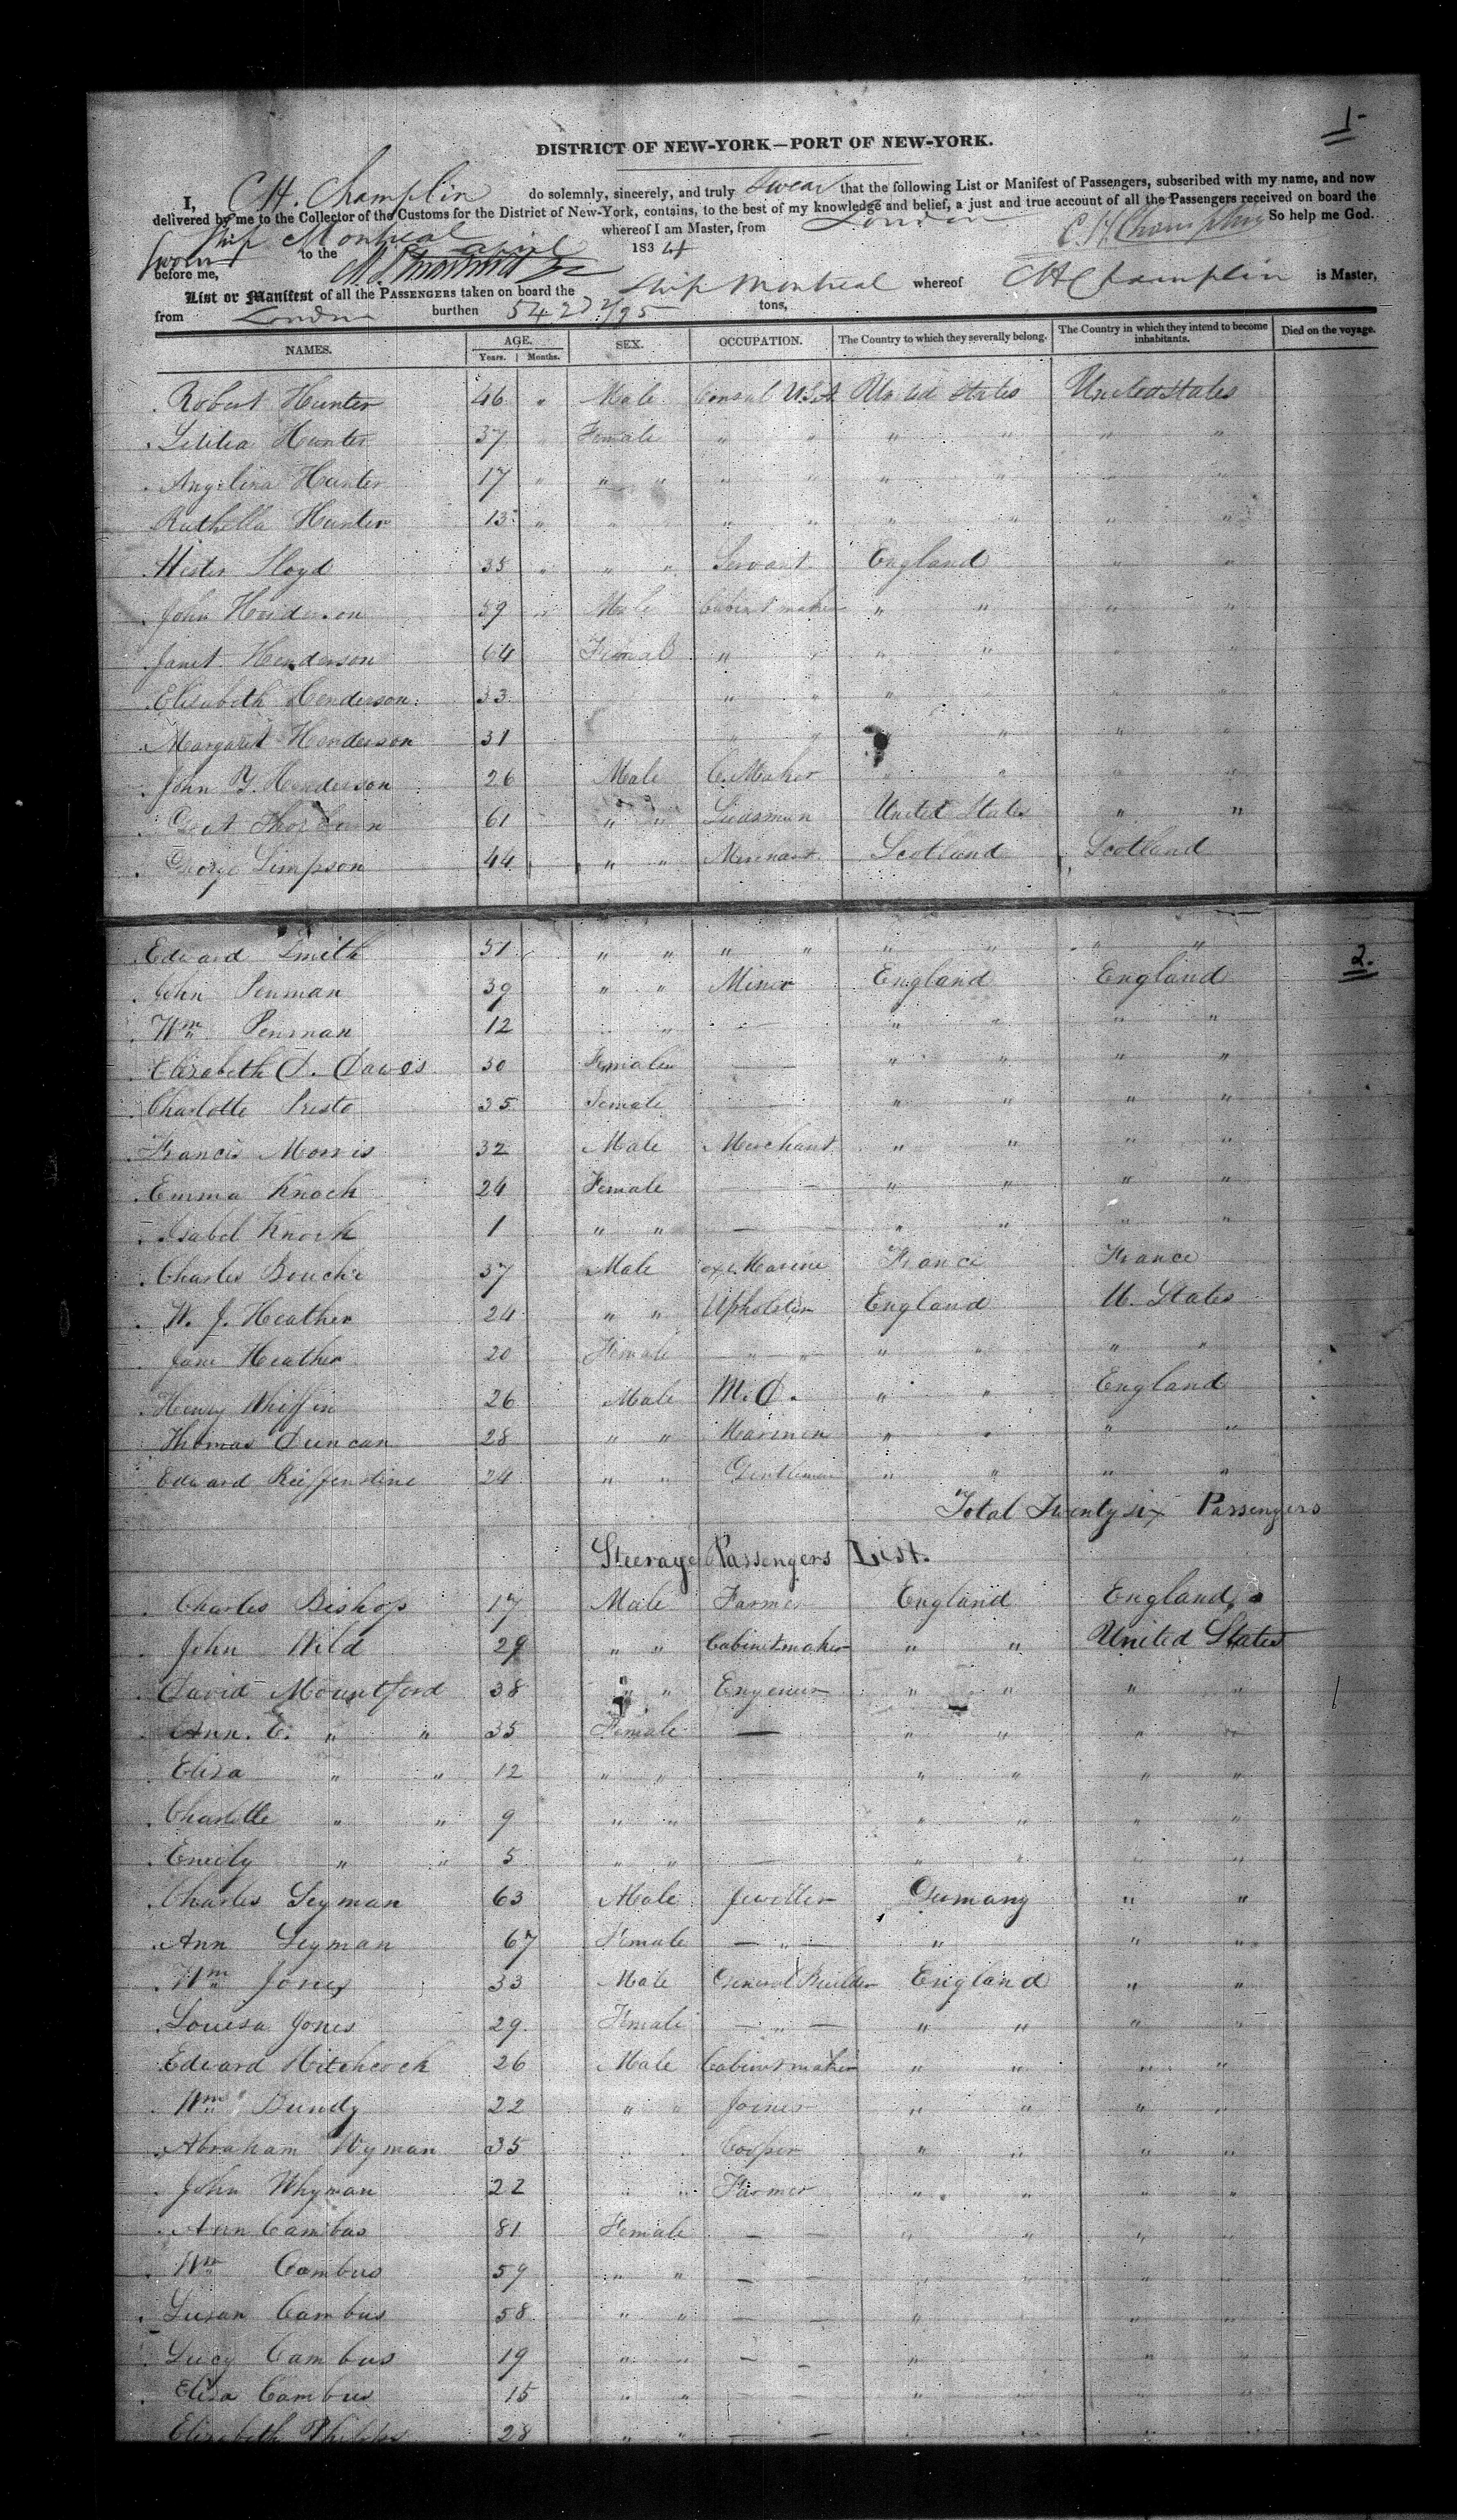 1
DISTRICT OF NEW-YORK—PORT OF NEW-YORK.
I, C.H. Champlin do solemnly, sincerely, and truly Swear that the following List or Manifest of Passengers, subscribed with my name, and now
delivered by me to the Collector of the Customs for the District of New-York, contains, to the best of my knowledge and belief, a just and true account of all the Passengers received on board the
Ship Montreal whereof I am Master, from London C.H. Champlin So help me God.
Sworn to the April 1834
before me,
List or Manifest of all the PASSENGERS taken on board the Ship Montreal whereof C H Champlin is Master,
from London burthen 542 /95 tons,
NAMES. AGE. Years. Months. SEX. OCCUPATION. The Country to which they severally belong. The Country in which they intend to become inhabitants. Died on the voyage.
Robert Hunter 46 " Male Consul U.S.A United States United States
Letitia Hunter 37 " Female " " " " " "
Angelina Hunter 17 " " " " " " " " "
Ruthella Hunter 13 " " " " " " " "
Hester Lloyd 35 " " " Servant England " "
John Henderson 59 " Male Cabinet maker " " " "
Janet Henderson 64 Female " " " " " "
Elisabeth Henderson 33 " " " " " "
Margaret Henderson 31 " " " " "
John Y. Henderson 26 Male C. Maker " " " "
Grant Thorburn 61 " " Seedsman United States " "
George Simpson 44 " " Merchant Scotland Scotland
2.
Edward Smith 51 " " " " " " " "
John Penman 39 " " Miner England England
Wm Penman 12 " " " " "
Elizabeth D. Dawes 30 Female — " " " "
Charlotte Presto 35 Female — " " " "
Francis Morris 32 Male Merchant " " " "
Emma Knock 24 Female — " " " "
Isabel Knock 1 " " — " " " "
Charles Bouché 37 Male Marine France France
W. J. Heather 24 " " Upholster England U. States
Jane Heather 20 Female " " " " " "
Henry Whiffin 26 Male M.D. " " England
Thomas Duncan 28 " " Mariner " " " "
Edward Reiffenstine 24 " " Gentleman " " " "
Total Twenty six Passengers
Steerage Passengers List.
Charles Bishop 17 Male Farmer England England
John Wild 29 " " Cabinetmaker " " United States
David Mountford 38 " " Engeneer " " " "
Ann. C. " " 35 Female — " " " "
Eliza " " 12 " " — " " " "
Charlotte " " 9 " " — " " " "
Emily " " 5 " " — " " " "
Charles Seyman 63 Male Jeweller Germany " "
Ann Seyman 67 Female — " — " " "
Wm Jones 33 Male General Builder England " "
Louisa Jones 29 Female — " — " " " "
Edward Hitchcock 26 Male Cabinetmaker " " " "
Wm Bundy 22 " " Joiner " " " "
Abraham Wyman 35 " " Cooper " " " "
John Whyman 22 " " Farmer " " " "
Ann Cambus 81 Female — — " " " "
Wm Cambus 59 " " — — " " " "
Susan Cambus 58 " " — — " " "
Lucy Cambus 19 " " — — " " "
Eliza Cambus 15 " " — — " " " "
Elizabeth 28 " " — — " " " "